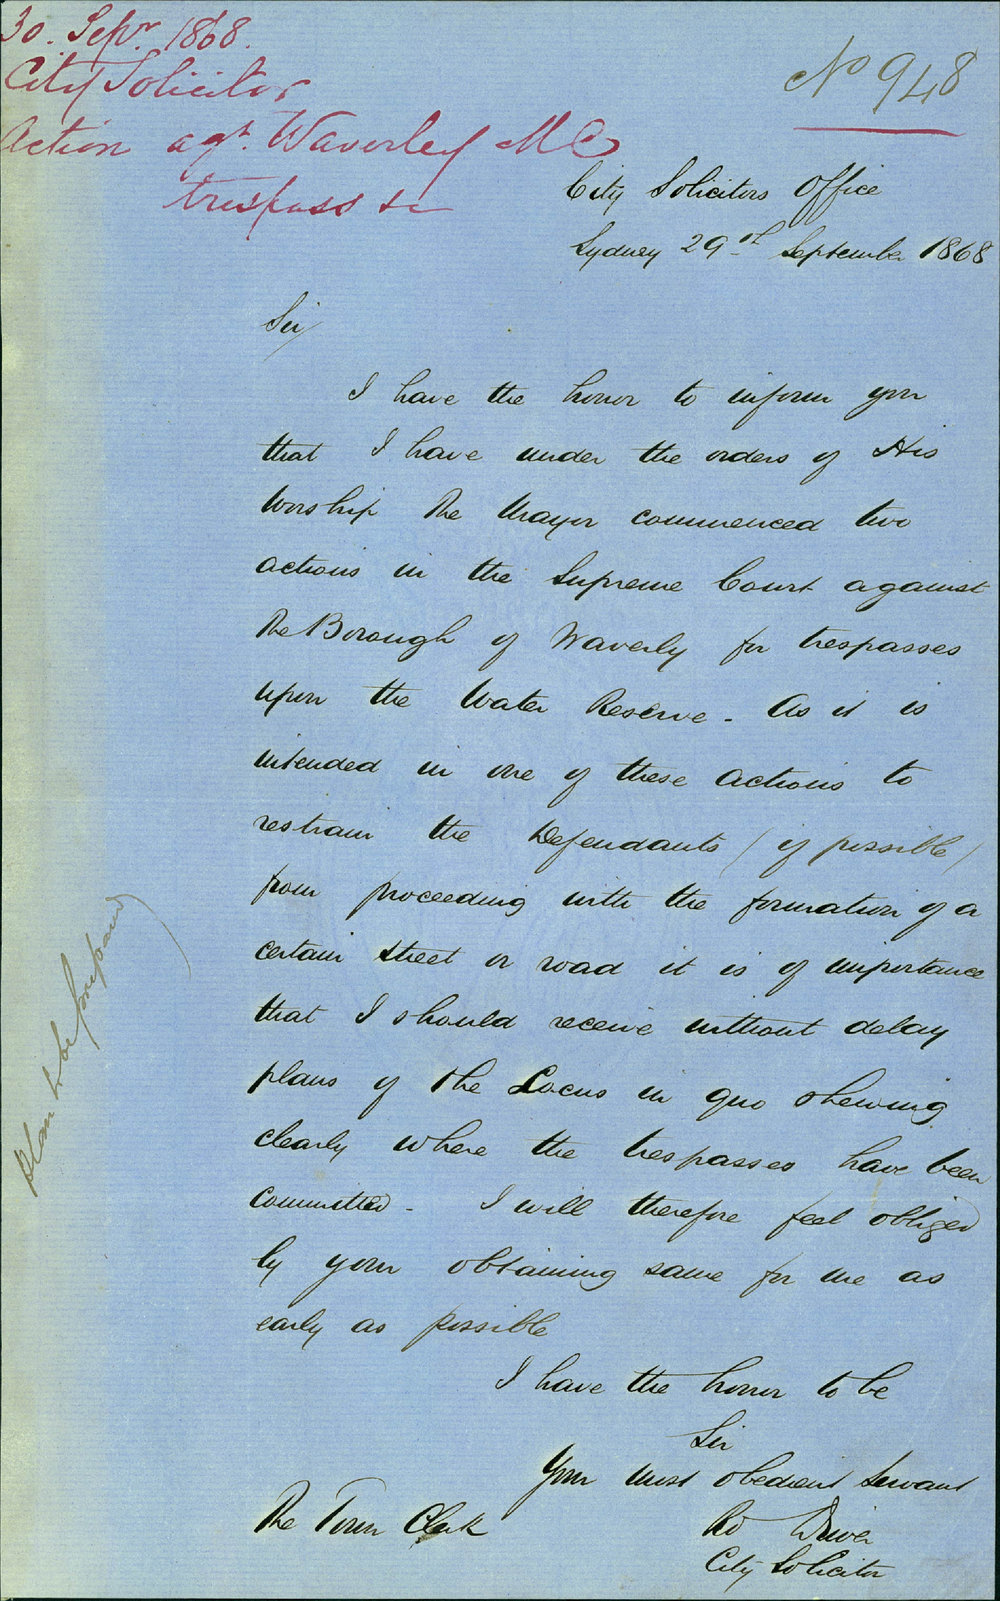 30. Sepr. 1868.
City Solicitor
Action agt. Waverley M C
trespass &c
No 948
City Solicitors Office
Sydney 29th September 1868
Sir
I have the honor to inform you
that I have under the orders of His
Worship The Mayor commenced two
actions in the Supreme Court against
The Borough of Waverly for trespasses
upon the Water Reserve - As it is
intended in one of these actions to
restrain the Defendants (if possible)
from proceeding with the formation of a
certain street or road it is of importance
that I should receive without delay
plans of the Locus in quo shewing
clearly where the trespasses have been
committed - I will therefore feel obliged
by your obtaining same for me as
early as possible
I have the honor to be
Sir
Your most obedient Servant
Rd Driver
City Solicitor
The Town Clerk
Plan to be prepared